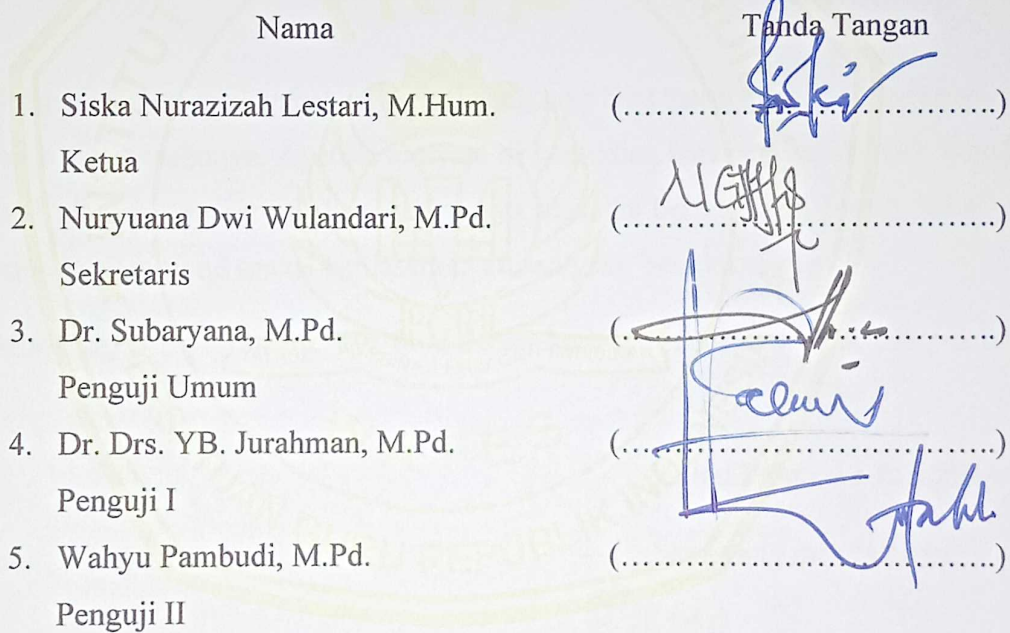 Nama Tanda Tangan
1. Siska Nurazizah Lestari, M.Hum. (..............................................)
Ketua
2. Nuryuana Dwi Wulandari, M.Pd. (..............................................)
Sekretaris
3. Dr. Subaryana, M.Pd. (..............................................)
Penguji Umum
4. Dr. Drs. YB. Jurahman, M.Pd. (..............................................)
Penguji I
5. Wahyu Pambudi, M.Pd. (..............................................)
Penguji II